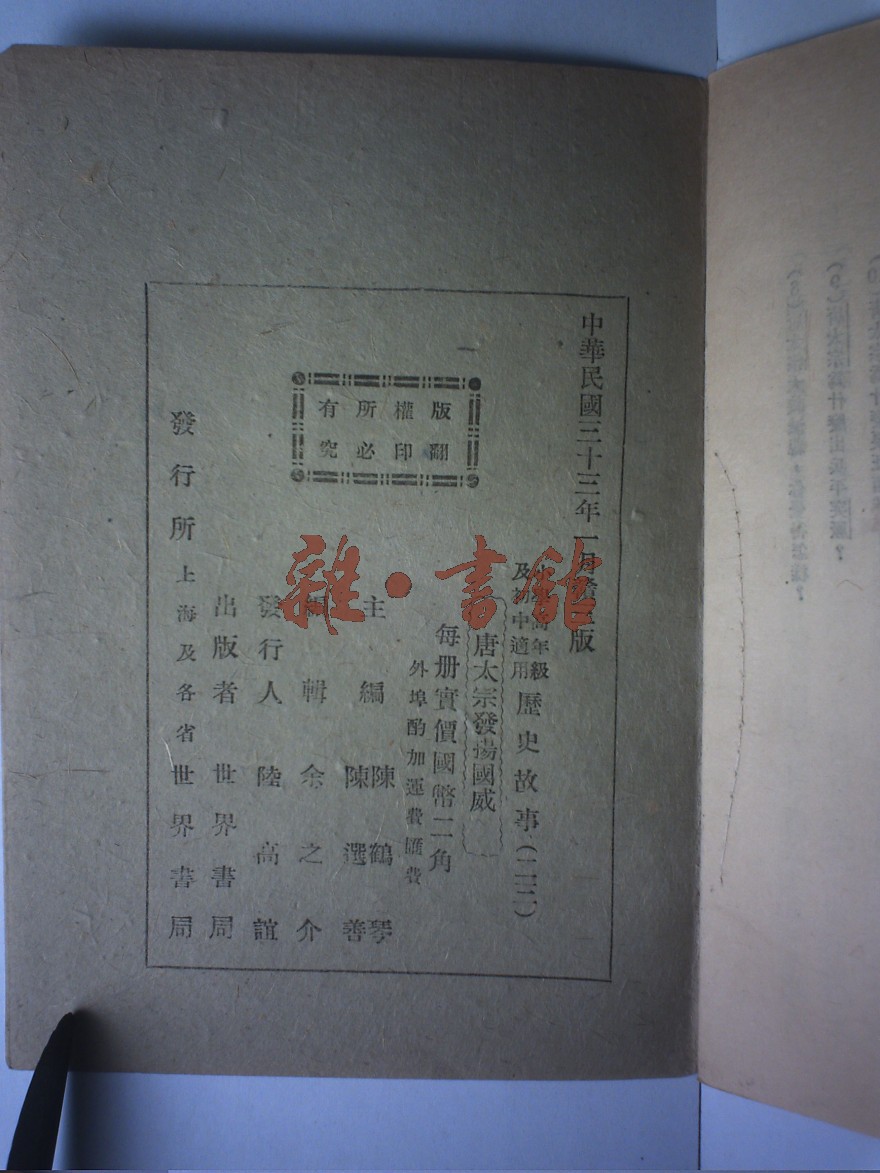 中華民國三十三年一月
版
高年級
及初中適用
歷史故事(二二)
唐太宗發揚國威
每册實價國幣二角
外埠酌加運費匯費
主編 陳鶴琴 陳選善
編輯 余之介
發行人 陸高誼
出版者 世界書局
發行所 上海及各省世界書局
版權所有
翻印必究
雜·書館